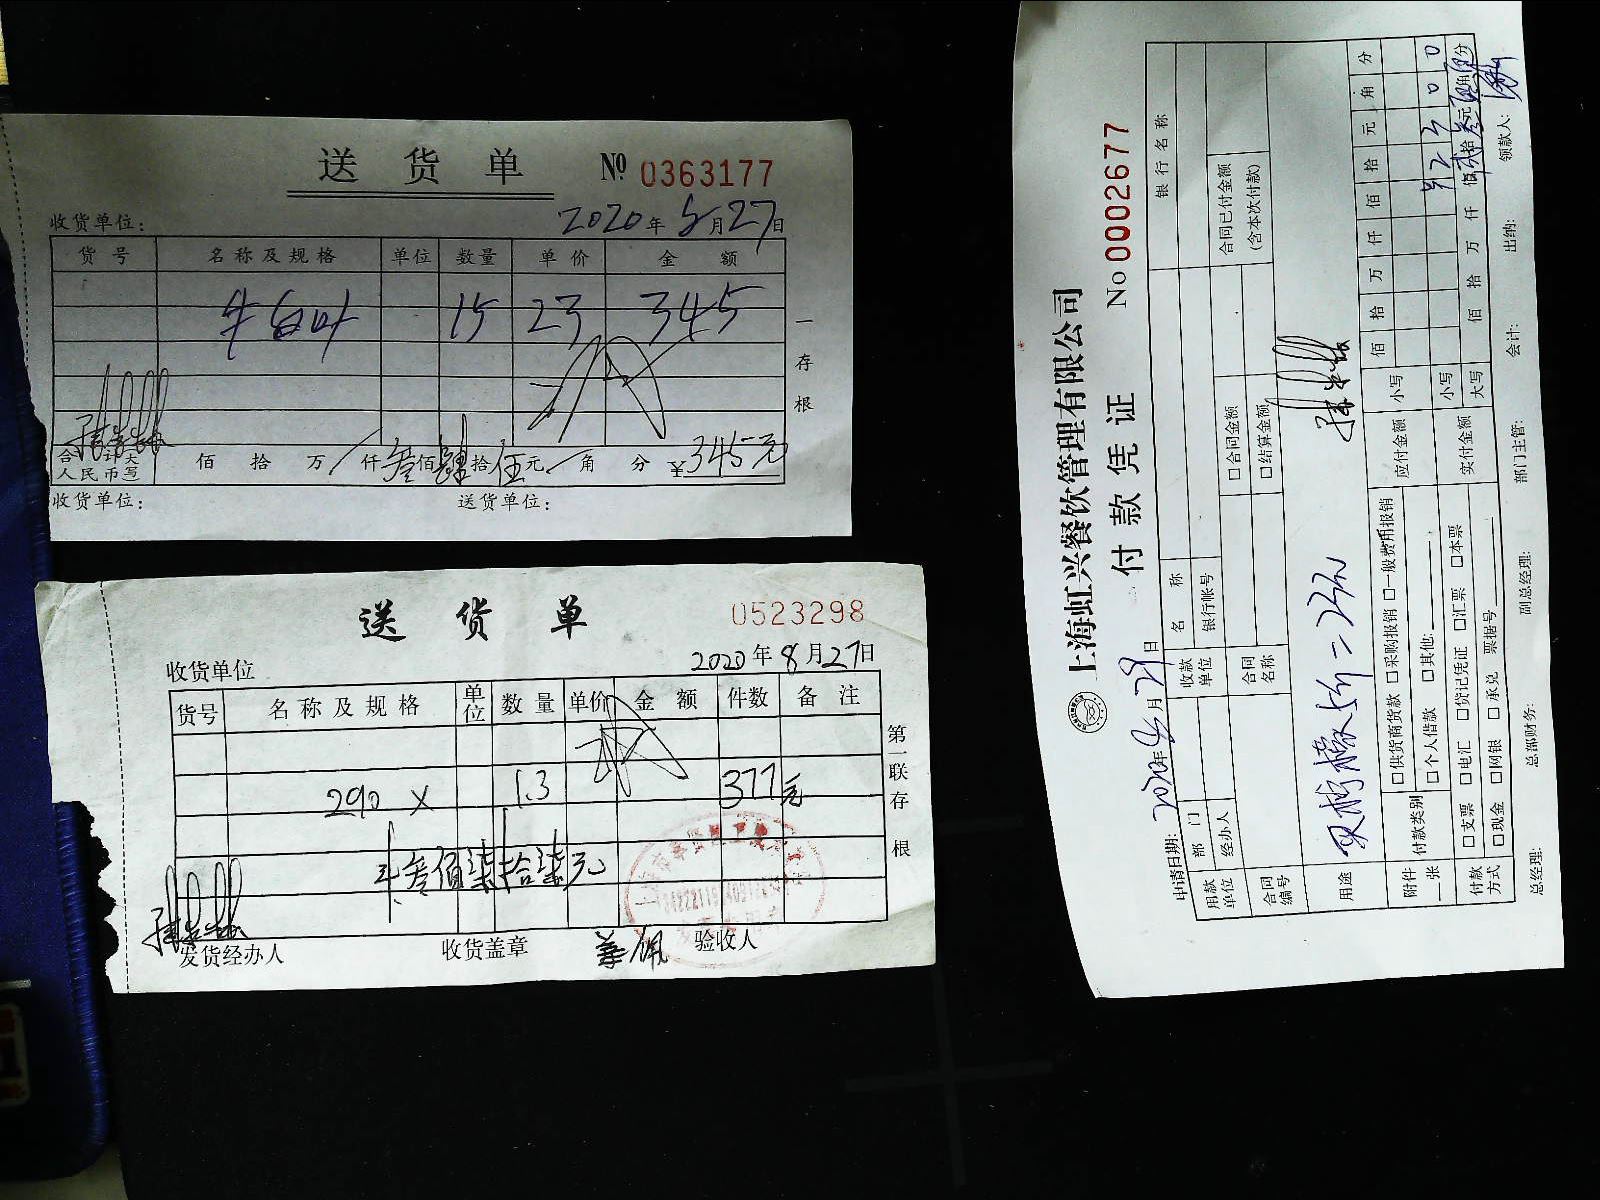 送 货 单 No 0363177
收货单位: 2020年8月27日
货号 名称及规格 单位 数量 单价 金额
15 23 345
一存根
合计大写人民币 佰 拾 万 仟 叁佰肆拾伍元 角 分 ¥345元
收货单位: 送货单位:
送 货 单 0523298
收货单位 2020年8月27日
货号 名称及规格 单位 数量 单价 金额 件数 备注
290 × 1.3 377元
叁佰柒拾柒元
第一联存根
发货经办人 收货盖章 验收人
上海虹兴餐饮管理有限公司
付款凭证 No 0002677
申请日期: 2020年8月29日
用款单位 部门 收款单位 名称 银行名称
经办人 银行帐号
合同编号 合同名称 □合同金额 合同已付金额
□结算金额 (含本次付款)
用途 =23元
附件 张 付款类别 □供货商货款 □采购报销 □一般费用报销 应付金额 小写 佰 拾 万 仟 佰 拾 元 角 分
□个人借款 □其他:
付款方式 □支票 □电汇 □贷记凭证 □汇票 □本票 实付金额 小写 ¥2300
□现金 □网银 □承兑 票据号 大写 佰 拾 万 仟 佰贰拾叁元零角零分
总经理: 总部财务: 副总经理: 部门主管: 会计: 出纳: 领款人: